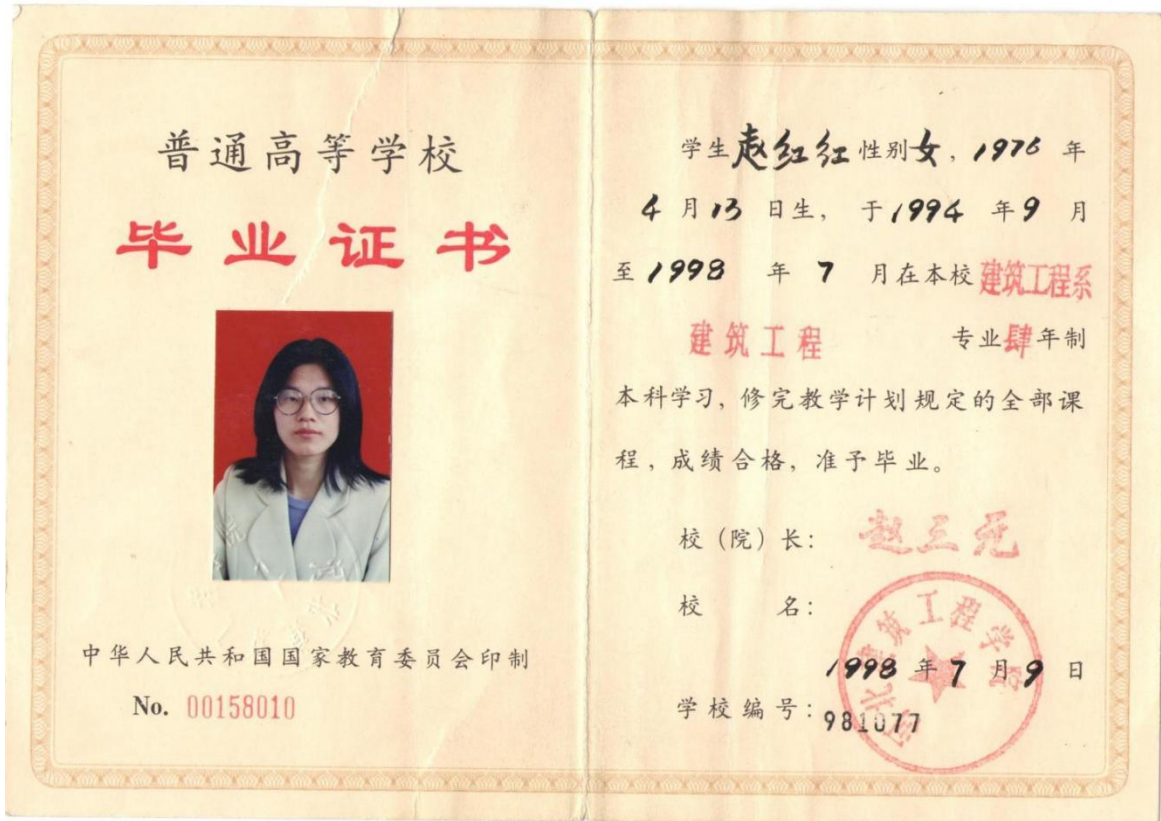 普通高等学校
毕业证书
中华人民共和国国家教育委员会印制
No. 00158010
学生赵红红性别女，1976 年
4 月 13 日生，于 1994 年 9 月
至 1998 年 7 月在本校 建筑工程系
建筑工程 专业肆年制
本科学习，修完教学计划规定的全部课
程，成绩合格，准予毕业。
校（院）长： 赵三元
校 名：
西北建筑工程学院
1998 年 7 月 9 日
学校编号：981077